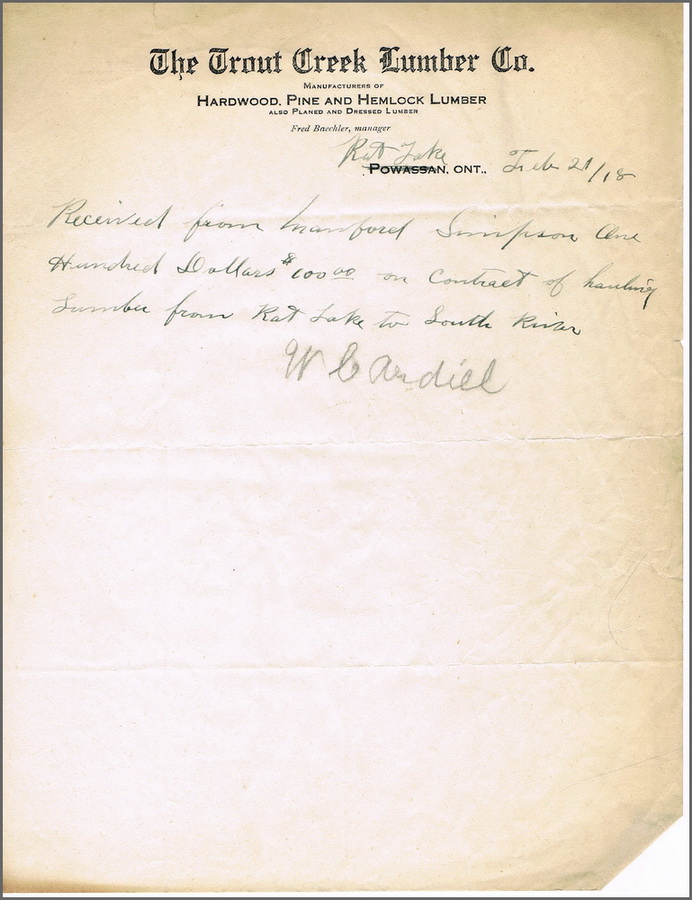 The Trout Creek Lumber Co.
Manufacturers of
Hardwood, Pine and Hemlock Lumber
also Planed and Dressed Lumber
Fred Baechler, manager
Rat Lake
Powassan, Ont., Feb 21/18
Received from Manford Simpson One
Hundred Dollars $100 00 on Contract of hauling
Lumber from Rat Lake to South River
W C Ardiel